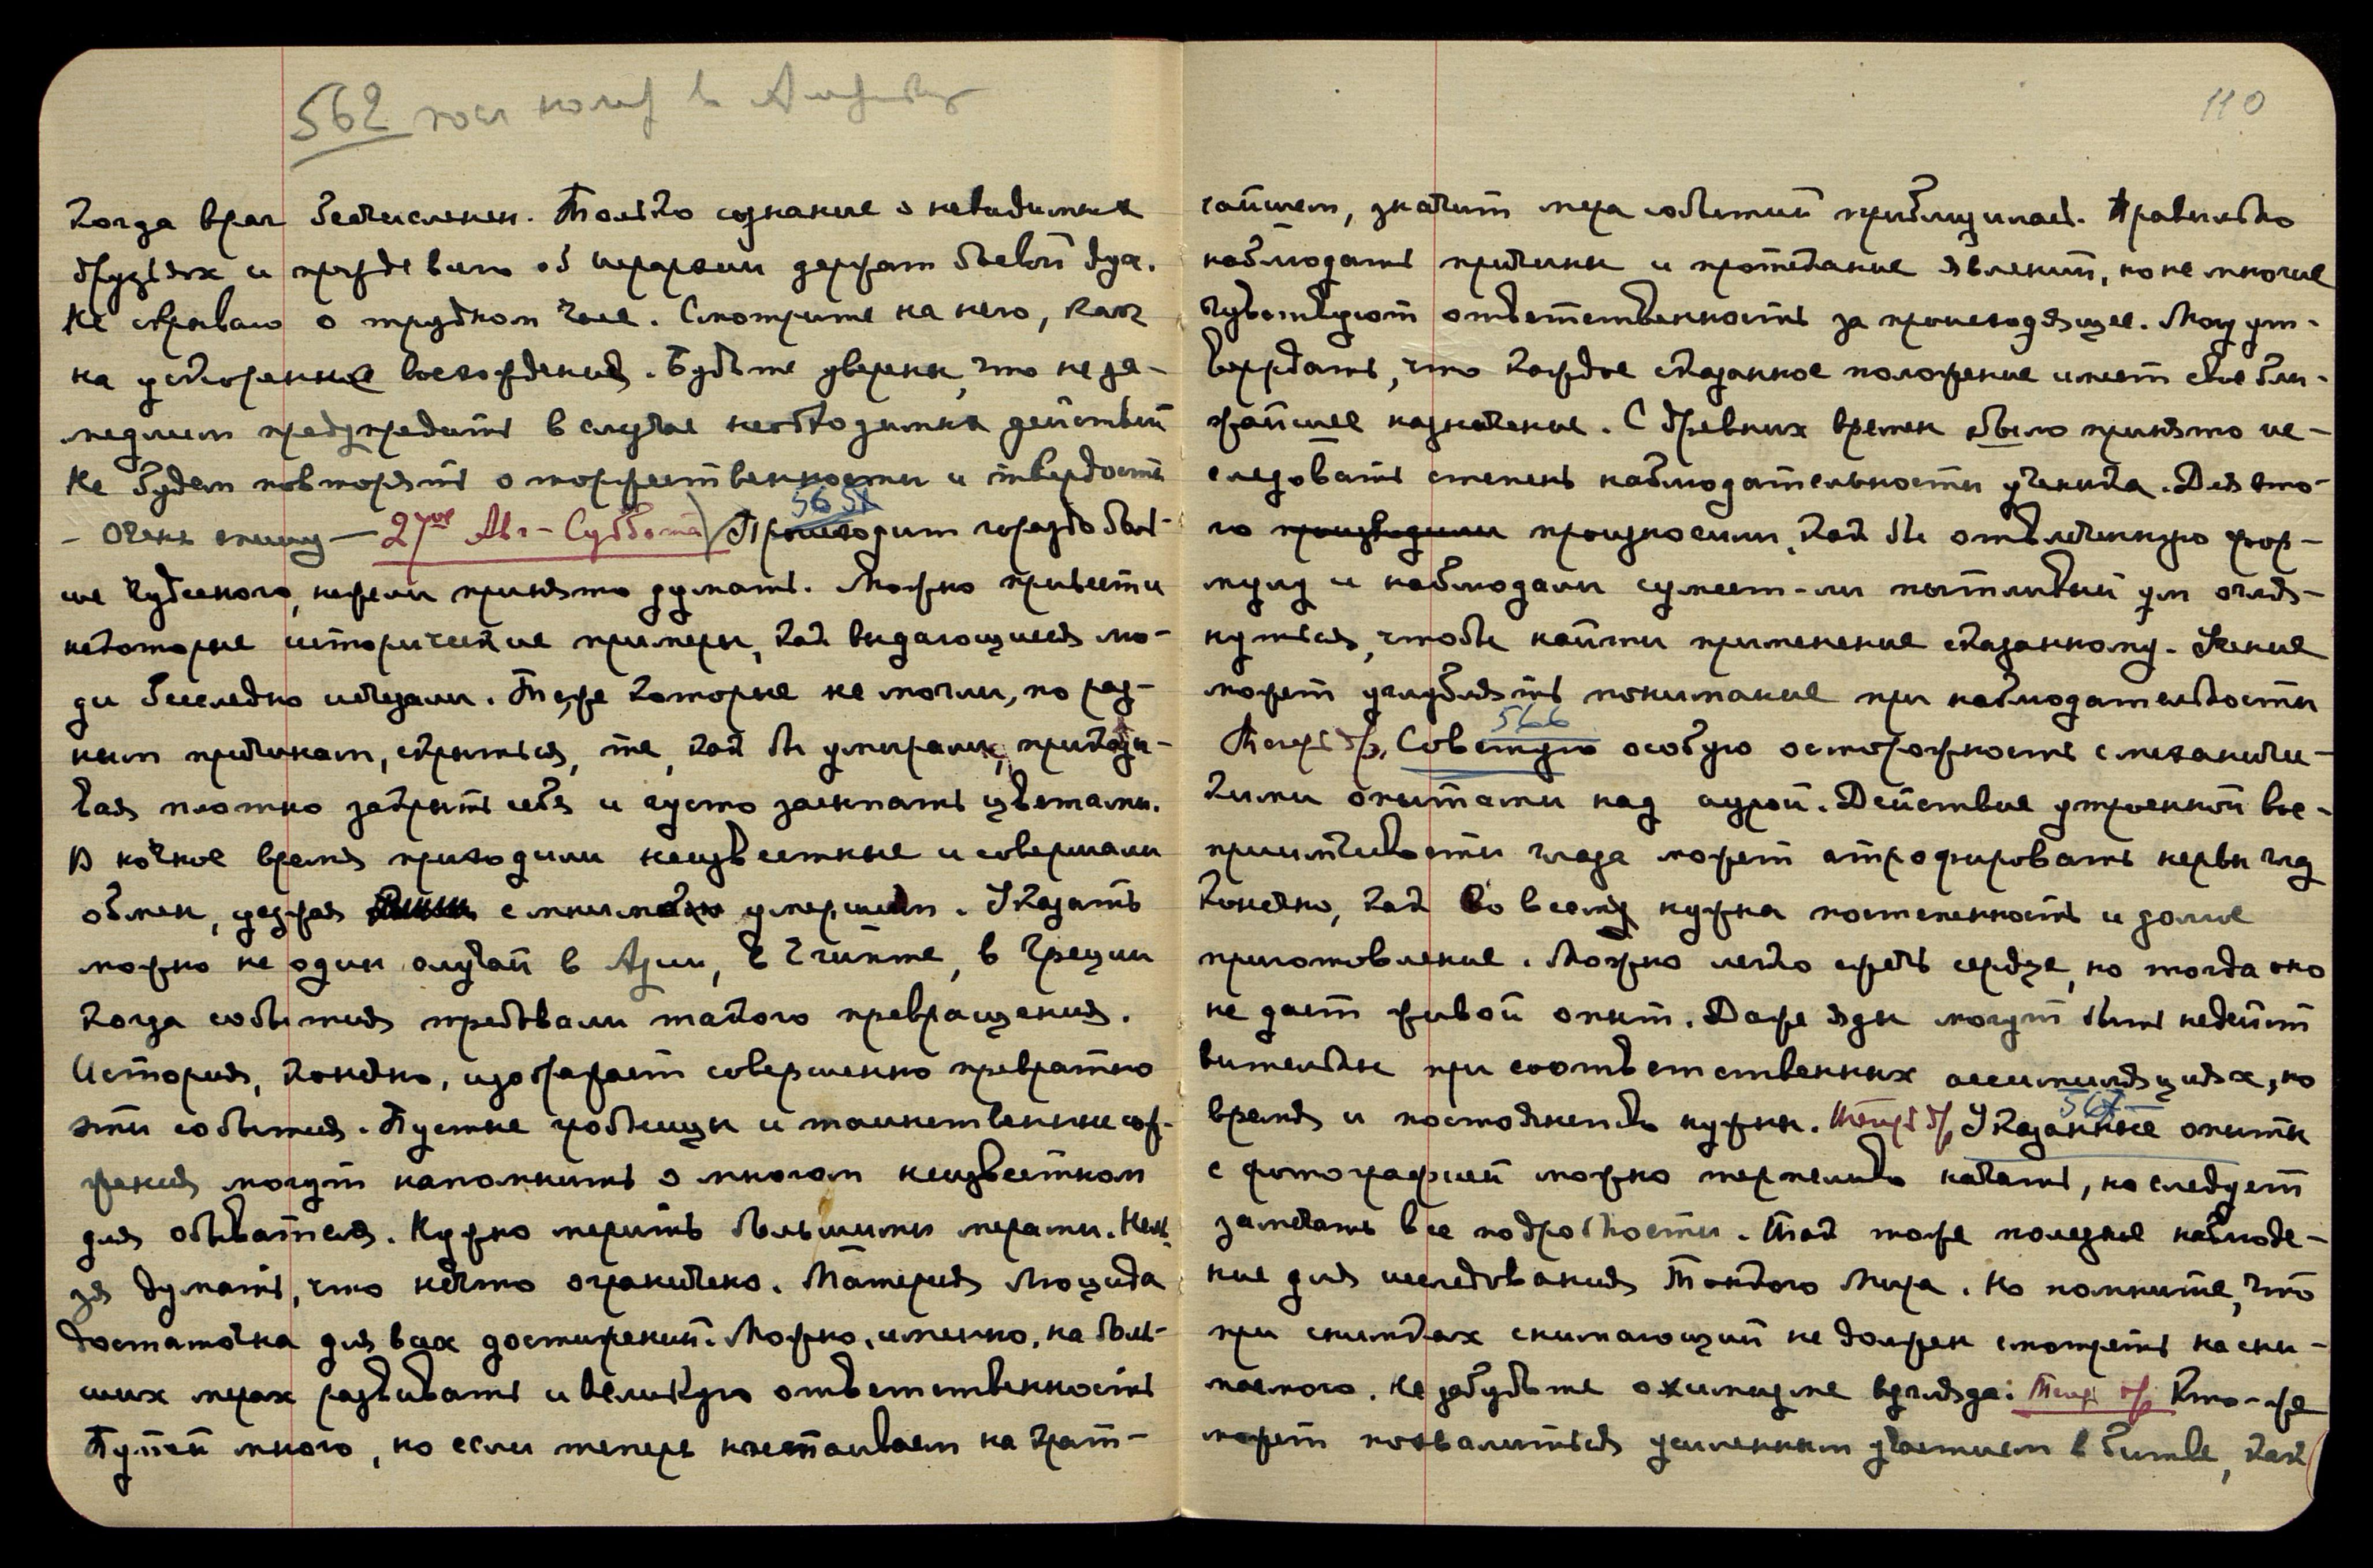 562
когда враг бесчисленен. Только сознание о невидимых
друзьях и об иерархии держат боевой дух.
Не скрываю о трудном часе. Смотрите на него, как
на ускорение восхождения. Будьте уверены, что не за-
медлим предупредить в случае необходимых действий
Не будем повторять о торжественности и твердости
- Очень спешу — 27ое Авг - Суббота) 565 Происходит гораздо боль-
ше чудесного, нежели принято думать. Можно привести
некоторые исторические примеры, как выдающиеся лю-
ди бесследно исчезали. Те же которые не могли, по раз-
ным причинам, скрыться, те, как бы умирали, приказы-
вая плотно закрыть себя и густо засыпать цветами.
В ночное время приходили неизвестные и совершали
обмен, уезжая с мнимо умершим. Указать
можно не один случай в Азии, в Египте, в Греции
когда события требовали такого превращения.
История, конечно, изображает совершенно превратно
эти события. Пустые гробницы и таинственные сож-
жения могут напомнить о многом неизвестном
для обывателя. Нужно мерить большими мерами. Нель-
зя думать, что нечто ограничено. Материя Люцида
достаточна для всех достижений. Можно, именно, на боль-
ших мерах развивать и великую ответственность
Путей много, но если теперь настаиваем на крат-
110
чайшем, значит мера событий приблизилась. Правильно
наблюдать причины и протекание явлений, но не многие
чувствуют ответственность за происходящее. Могу ут-
верждать, что каждое сказанное положение имеет свое бли-
жайшее назначение. С древних времен было принято ис-
следовать степень наблюдательности ученика. Для это-
го производили произносили, как бы отвлеченную фор-
мулу и наблюдали сумеет-ли пытливый ум огля-
нуться, чтобы найти применение сказанному. Учение
может углублять понимание при наблюдательности
566
Советую особую осторожность с механичес-
кими опытами над аурой. Действие утроенной вос-
приимчивости глаза может атрофировать нервы глаз
Конечно, как во всем нужна постепенность и долгое
приготовление. Можно легко сжечь сердце, но тогда оно
не даст живой опыт. Даже яды могут быть недейст
вительны при соответственных ассимиляциях, но
время и постоянство нужны. 567 Указанные опыты
с фотографией можно терпеливо начать, но следует
замечать все подробности. Так тоже полезное наблюде-
ние для исследования Тонкого Мира. Но помните, что
при снимках снимающий не должен смотреть на сни-
маемого. Не забудьте о химизме взгляда: Кто-же
может похвалиться усиленным участием в битве, как